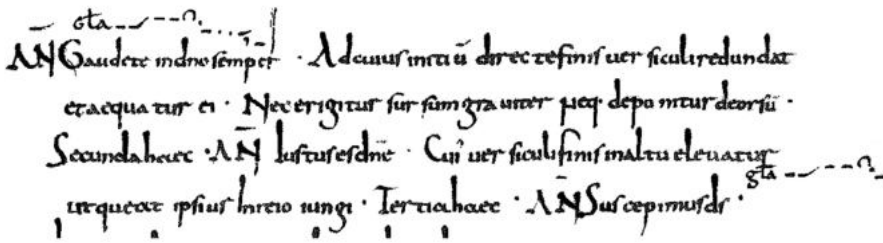 gła
AN̄ Gaudete indno semper · Ad cuius initiū directe finis versiculi redundat
et aequatur ei · Nec erigitur sursum graviter neq. deponitur deorsū ·
Secunda haec · AN̄ Iustus es dnē · Cui' versiculi finis in altū elevatur
utqueat ipsius Initio iungi · Tertia haec · AN̄ Suscepimus ds ·
gła